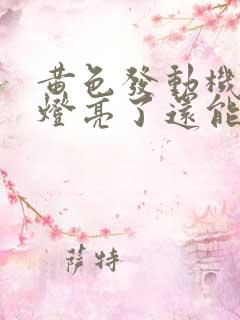 黃色發動機
燈亮了還能
薩特